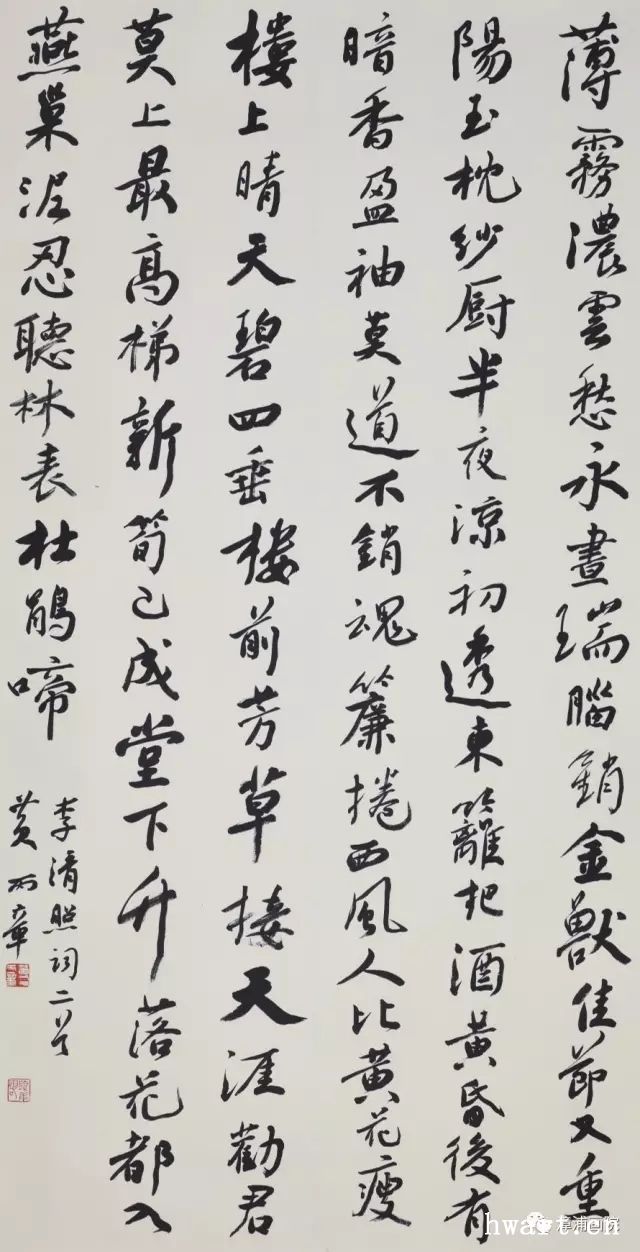 薄霧濃雲愁永晝瑞腦銷金獸佳節又重
陽玉枕紗厨半夜涼初透東籬把酒黃昏後有
暗香盈袖莫道不銷魂簾捲西風人比黃花瘦
樓上晴天碧四垂樓前芳草接天涯勸君
莫上最高梯新筍已成堂下竹落花都入
燕巢泥忍聽林表杜鵑啼
李清照詞二首
黄章
漳浦画院
hwart.cn